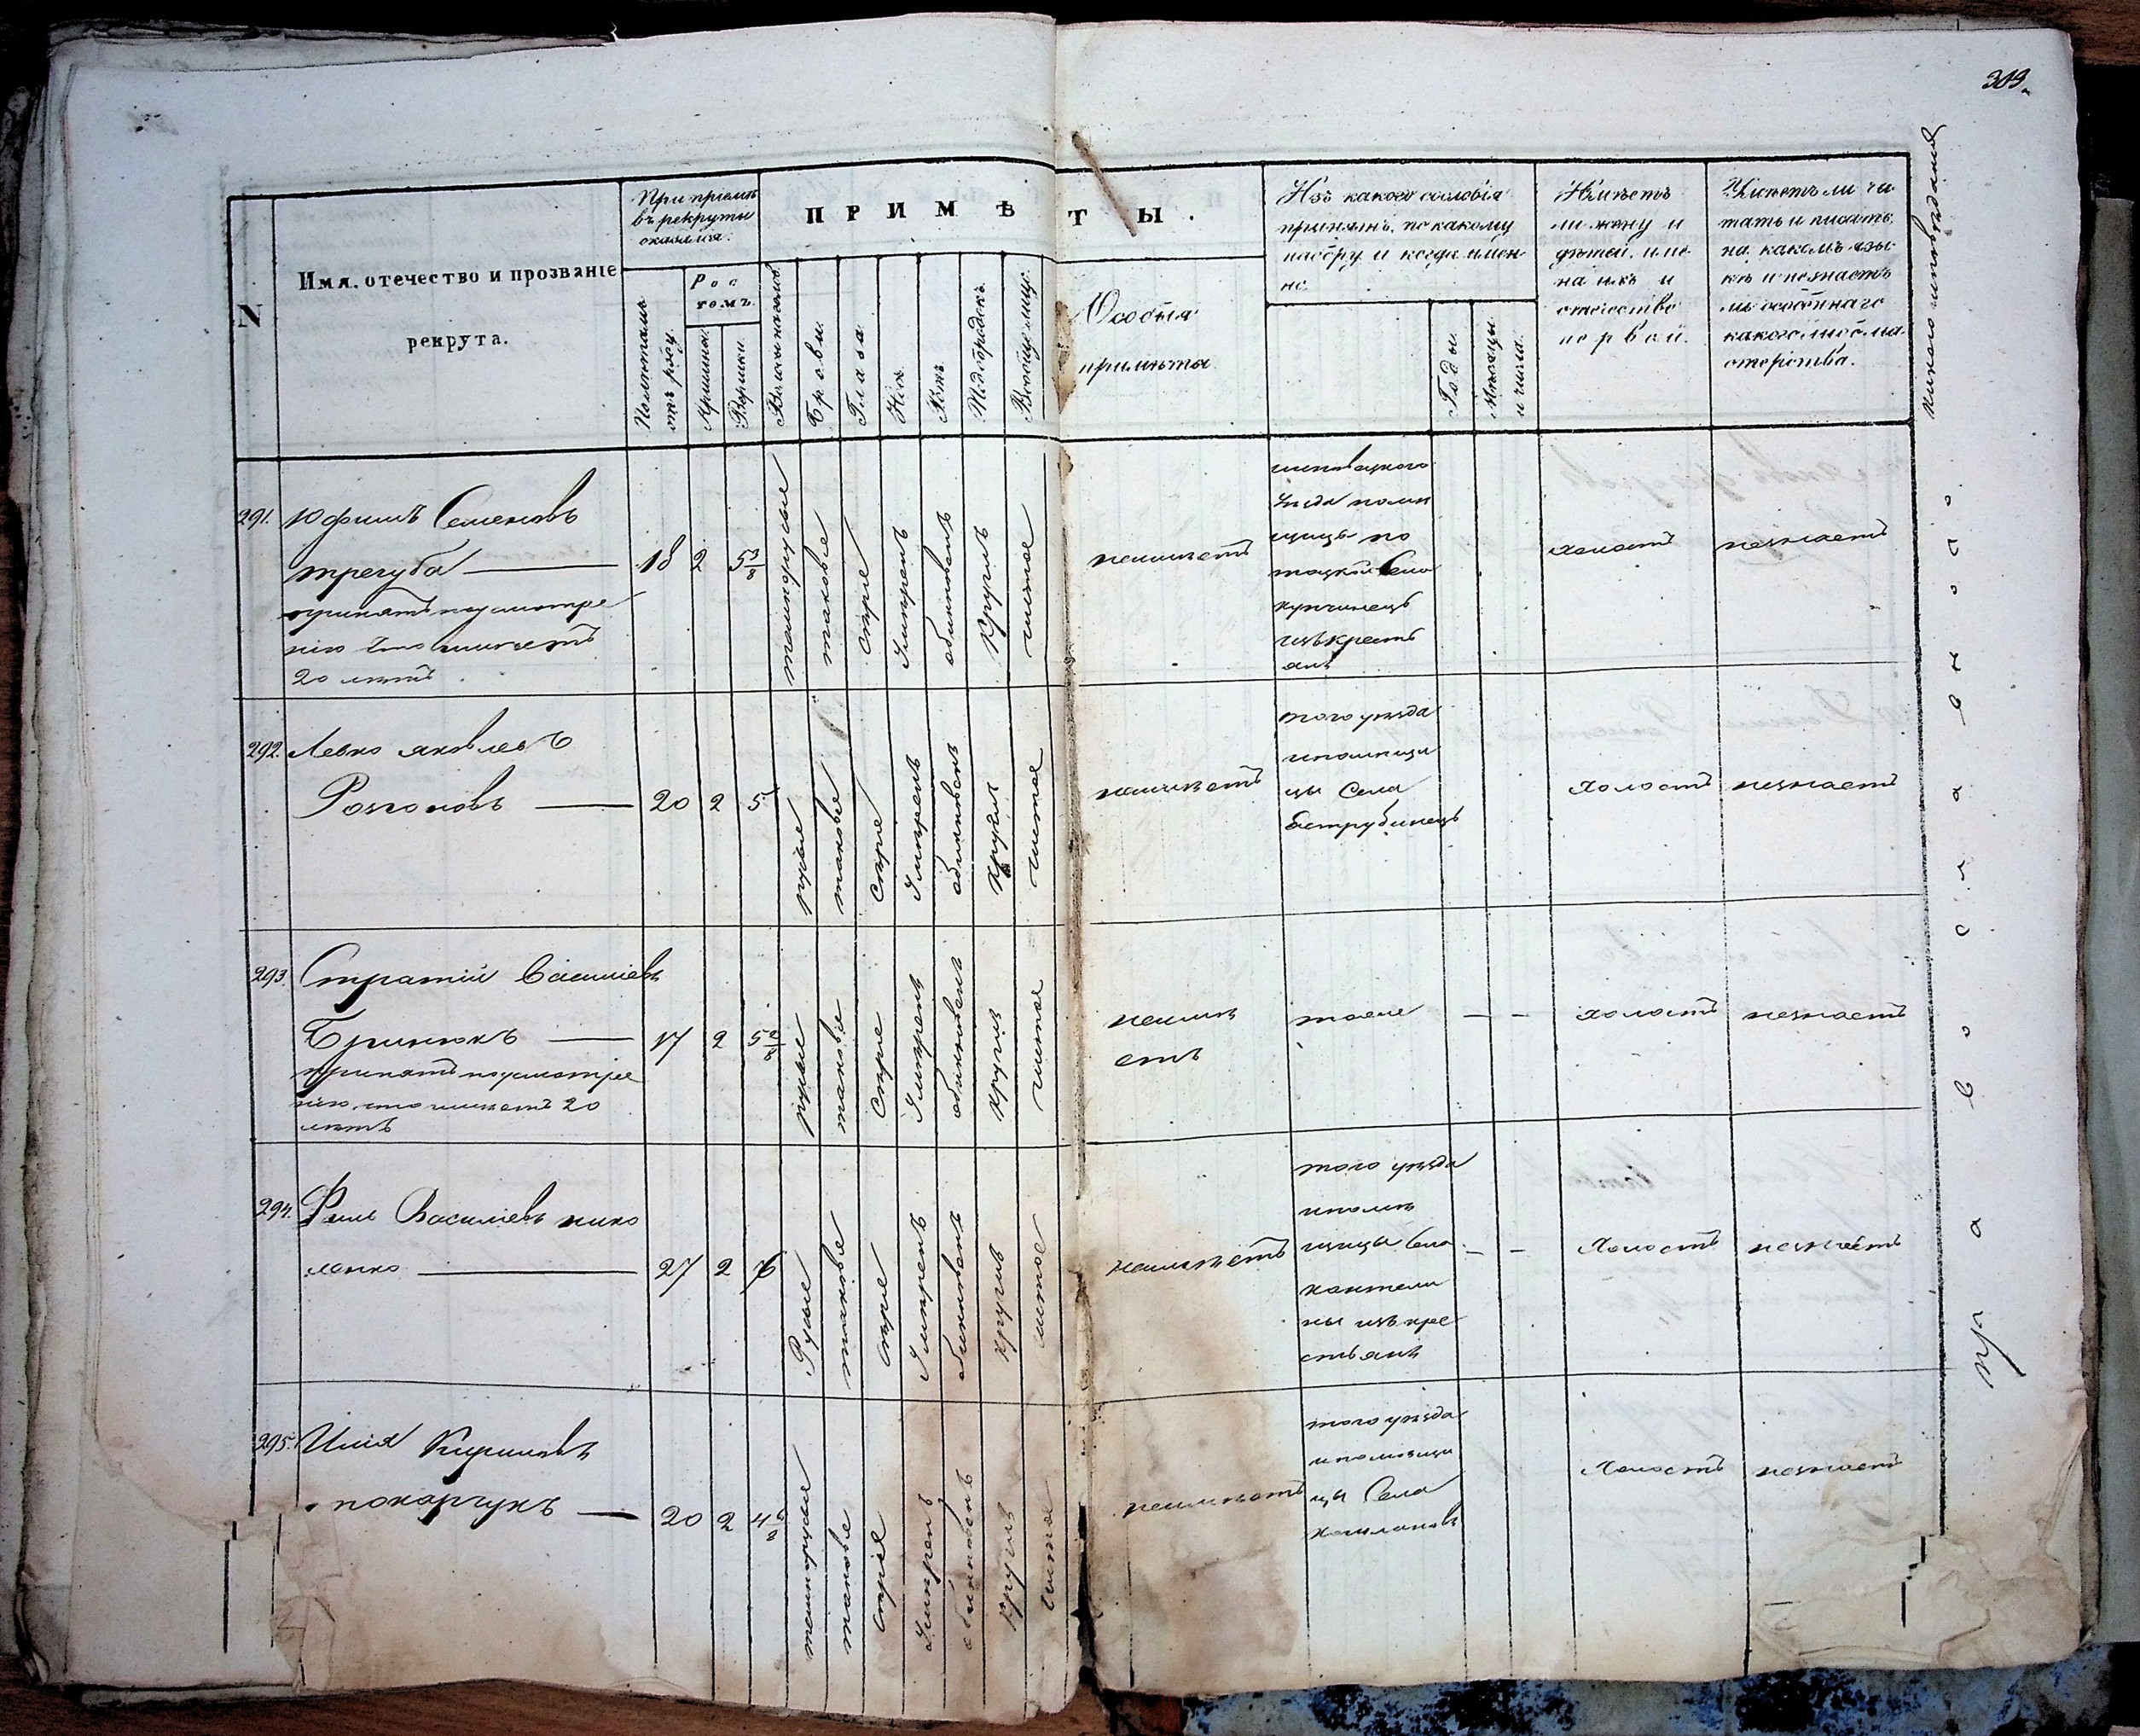 309.
N
Имя, отечество и прозваніе
рекрута.
При пріемѣ
въ рекруты
оказалися:
Полнѣтамъ
отъ роду.
Рос
томъ.
Аршины.
Вершки.
ПРИМѢТЫ.
Волосы на головѣ
Брови.
Глаза.
Носъ.
Ротъ.
Подбородокъ.
Вообще лицо.
Особыя
примѣты
Изъ какого сословія
принятъ, по какому
набору и когда имен
но.
Годы.
Мѣсяцы
и числа.
Имѣетъ
ли жену и
дѣтей, име
на ихъ и
отечество
первой.
Умѣетъ ли чи
тать и писать,
на какомъ язы
кѣ и незнаетъ
ли особеннаго
какого либо ма
стерства.
291. Юфимъ Семеновъ
трегуба
принятъ по усмотре
нію что имѣетъ
20 лѣтъ
18 2 5 3/8
темнорусые
таковые
серые
Умѣренъ
обыкновенъ
Круглъ
чистое
неимѣетъ
уезда поме
щицы По
тоцкой Села
купчинецъ
изъ кресть
янъ
холостъ
незнаетъ
292. Левко яковлевъ
Розгоновъ
20 2 5
русые
таковые
серые
Умѣренъ
обыкновенъ
круглъ
чистое
неимѣетъ
того уѣзда
и помещи
цы Села
холостъ
незнаетъ
293. Стратій Василіевъ
Бринюкъ
принятъ по усмотре
нію что имѣетъ 20
лѣтъ
17 2 5 2/8
русые
таковые
Серые
Умѣренъ
обыкновенъ
круглъ
чистое
неимѣ
етъ
тоже
холостъ
незнаетъ
294. Василіевъ нико
ленко
27 2 6
Русые
таковые
серые
Умѣренъ
обыкновенъ
круглъ
чистое
неимѣетъ
того уѣзда
и поме
щицы Села
кантели
ны изъ кре
стьянъ
Холостъ
незнаетъ
295. Илія Кириловъ
покарчукъ
20 2 4 6/8
темнорусые
таковые
серые
Умѣренъ
обыкновенъ
Круглъ
Чистое
неимѣетъ
того уѣзда
и помѣщи
цы Села
Холостъ
незнаетъ
православнаго